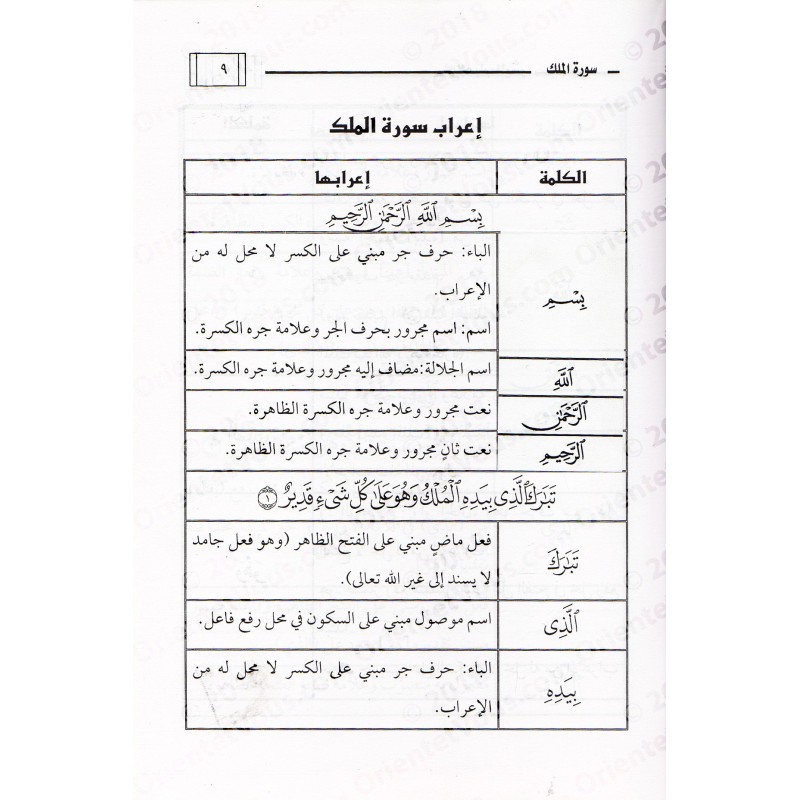 سورة الملك
٩
إعراب سورة الملك
الكلمة
إعرابها
بِسْمِ ٱللَّهِ ٱلرَّحْمَٰنِ ٱلرَّحِيمِ
بِسْمِ
الباء: حرف جر مبني على الكسر لا محل له من
الإعراب.
اسم: اسم مجرور بحرف الجر وعلامة جره الكسرة.
ٱللَّهِ
اسم الجلالة:مضاف إليه مجرور وعلامة جره الكسرة.
ٱلرَّحْمَٰنِ
نعت مجرور وعلامة جره الكسرة الظاهرة.
ٱلرَّحِيمِ
نعت ثانٍ مجرور وعلامة جره الكسرة الظاهرة.
تَبَٰرَكَ ٱلَّذِى بِيَدِهِ ٱلْمُلْكُ وَهُوَ عَلَىٰ كُلِّ شَىْءٍ قَدِيرٌ ١
تَبَٰرَكَ
فعل ماضٍ مبني على الفتح الظاهر (وهو فعل جامد
لا يسند إلى غير الله تعالى).
ٱلَّذِى
اسم موصول مبني على السكون في محل رفع فاعل.
بِيَدِهِ
الباء: حرف جر مبني على الكسر لا محل له من
الإعراب.
© 2018
Orientetvous.com